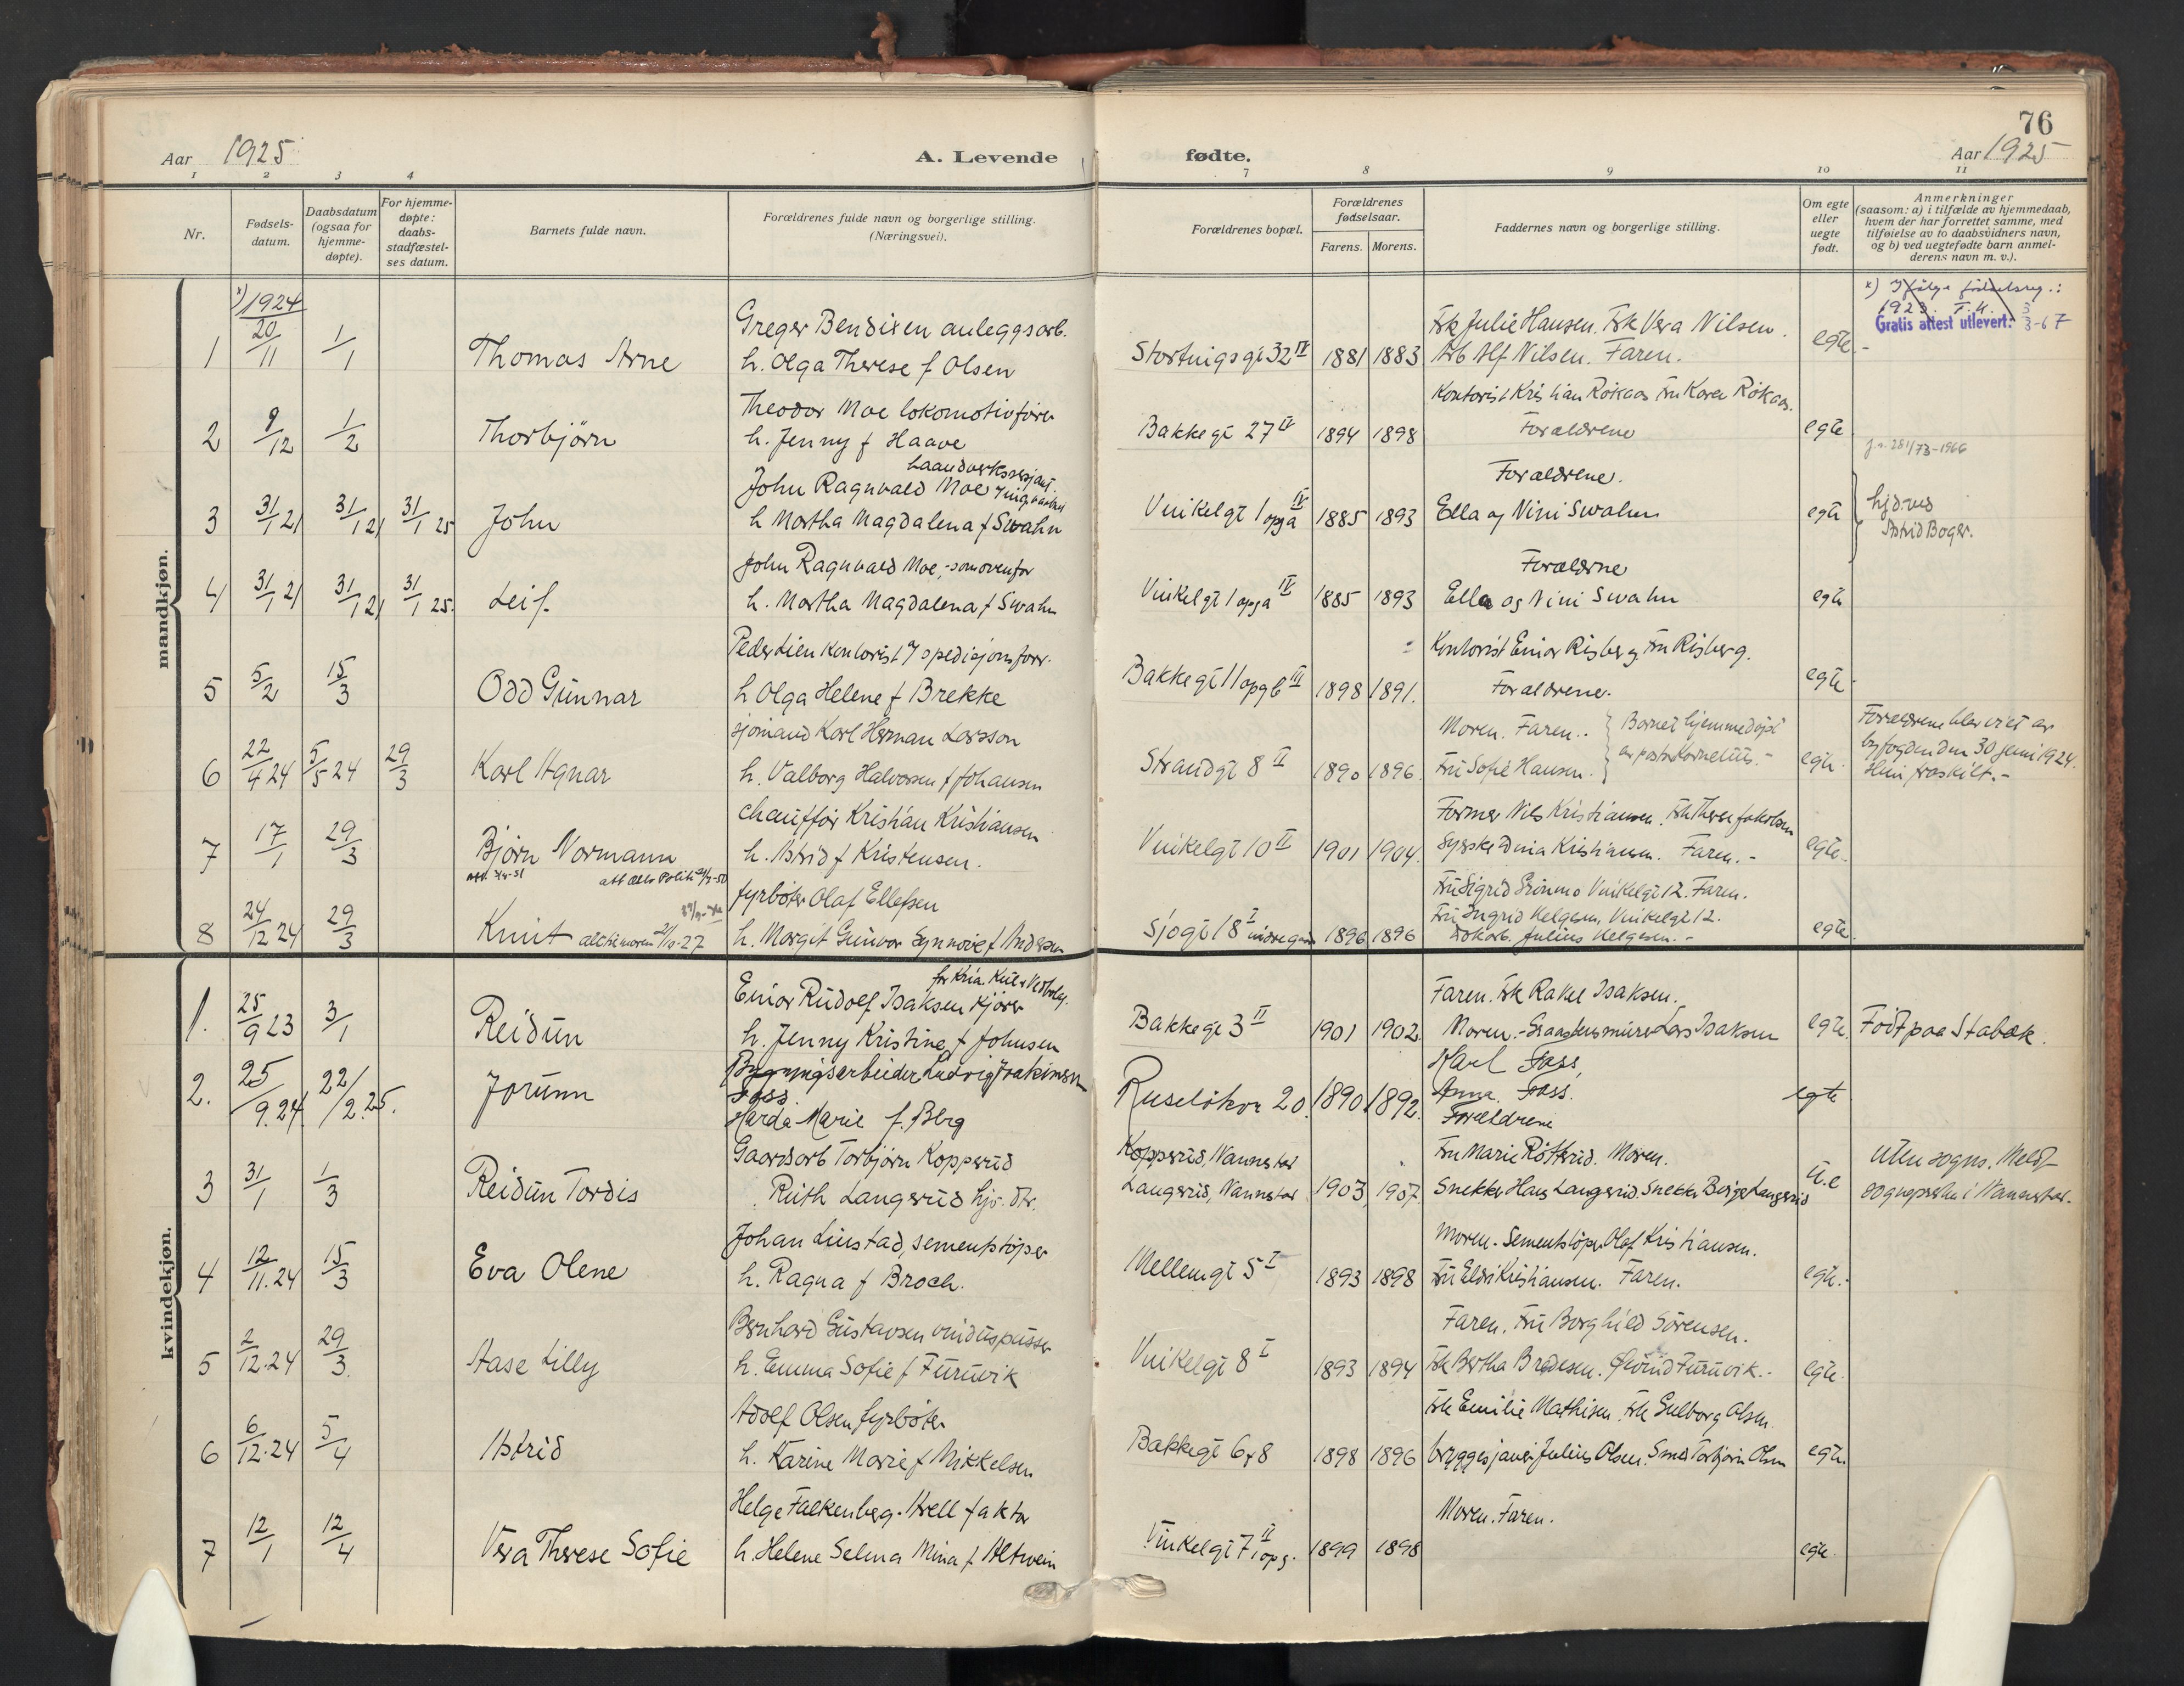 76
Aar 1925
A. Levende
fødte.
Aar 1925
1 2 3 4 7 8 9 10 11
Nr.
Fødsels-
datum.
Daabsdatum
(ogsaa for
hjemme-
døpte).
For hjemme-
døpte:
daabs-
stadfæstel-
ses datum.
Barnets fulde navn.
Forældrenes fulde navn og borgerlige stilling.
(Næringsvei).
Forældrenes bopæl.
Forældrenes
fødselsaar.
Farens. Morens.
Faddernes navn og borgerlige stilling.
Om egte
eller
uegte
født.
Anmerkninger
(saasom: a) i tilfælde av hjemmedaab,
hvem der har forrettet samme, med
tilføielse av to daabsvidners navn,
og b) ved uegtefødte barn anmel-
derens navn m. v.).
mandkjøn.
x) 1924
1 20/11 1/1 Thomas Arne
Greger Bendixen anleggsarb.
h. Olga Therese f Olsen
Stortingsgt 32 IV 1881 1883
Frk Julie Hansen. Frk Vera Nilsen.
Arb Alf Nilsen. Faren.
egte
1923
Gratis attest utlevert. 3/3-67
2 9/12 1/2 Thorbjörn
Theodor Moe lokomotivfører
h. Jenny f Haave
Bakkegt 27 IV 1894 1898
Kontorist Kristian Rökaas Fru Karen Rökaas.
Forældrene
egte
3 31/1 21 31/1 21 31/1 25 John
John Ragnvald Moe
h Martha Magdalena f Swahn
Vinkelgt 1 opg a IV 1885 1893
Forældrene.
Ella og Nini Swahn
egte
hjd. ved
Astrid Boger.
4 31/1 21 31/1 21 31/1 25. Leif.
John Ragnvald Moe, - som ovenfor
h. Martha Magdalena f Swahn
Vinkelgt 1 opg a IV 1885 1893
Forældrene
Ella og Nini Swahn
egte
5 5/2 15/3 Odd Gunnar
Peder Lien kontorist i spedisjonsforr.
h Olga Helene f Brekke
Bakkegt 11 opg b III 1898 1891.
Kontorist Einar Risberg. Fru Risberg.
Forældrene.
egte
6 22/4 24 5/5 24 29/3 Karl Agnar
sjömand Karl Herman Larsson
h. Valborg Halvorsen f Johansen
Strandgt 8 II 1890 1896.
Moren. Faren.
Fru Sofie Hansen.
Barnet hjemmedöpt
av pastor Kornelius. -
egte.
Forældrene blev viet av
byfogden den 30 juni 1924.
Hun fraskilt. -
7 17/1 29/3 Björn Normann
chauffør Kristian Kristiansen
h. Astrid f Kristensen.
Vinkelgt 10 II 1901 1904.
Former Nils Kristiansen. Frk Therese Jakobsen
Syerske Dina Kristiansen. Faren. -
egte.
8 24/12 24 29/3 Knut att til moren 21/10-27
fyrböter Olaf Ellefsen
h. Margit Gunvor Synnöve f Andersen
Sjögt 18 I 1896 1896
Fru Sigrid Grönmo Vinkelgt 12. Faren.
Fru Ingrid Helgesen, Vinkelgt 12.
Julius Helgesen. -
egte.
kvindekjøn.
1. 25/9 23 3/1 Reidun
Einar Rudolf Isaksen kjører
h. Jenny Kristine f Johnsen
Bakkegt 3 II 1901 1902.
Faren. Frk Rakel Isaksen.
Moren. - Graastensmurer Lars Isaksen
egte. Född paa Stabæk.
2. 25/9.24 22/2.25. Jorunn
Bygningsarbeider Ludvig Joakimsen
Foss
Harda Marie f. Berg
Ruselökvn 20. 1890 1892.
Karl Foss,
Anna Foss.
Forældrene
egte
3 31/1 1/3 Reidun Tordis
Gaardsarb Torbjörn Kopperud
Ruth Langerud hjv. dtr.
Kopperud, Nannestad
Langerud, Nannestad 1903, 1907.
Fru Marie Rötterud. Moren.
Snekker Hans Langerud. Snekker Børge Langerud
U.e
Uten sogns. Meldt
sogneprsten i Nannestad.
4 12/11.24 15/3 Eva Olene
Johan Linstad, sementstöper
h. Ragna f Broch.
Mellemgt 5 I 1893 1898
Moren. Sementstöper Olaf Kristiansen.
Fru Eldri Kristiansen. Faren.
egte.
5 2/12.24 29/3. Aase Lilly
Bernhard Gustavsen vinduspusser
h. Emma Sofie f Furuvik
Vinkelgt 8 I 1893 1894
Faren. Fru Borghild Sörensen.
Frk Bertha Bredesen. Öivind Furuvik. -
egte.
6 6/12.24 5/4 Astrid
Adolf Olsen fyrböter
h. Karine Marie f Mikkelsen
Bakkegt 6 & 8 1898 1896
Frk Emilie Mathisen. Frk Gulborg Olsen.
bryggesjauer Julius Olsen. Smed Torbjörn Olsen
egte.
7 12/1 12/4 Vera Therese Sofie
Helge Falkenberg-Krell faktor
h. Helene Selma Mina f Altwein
Vinkelgt 7 II opg. 1899 1898
Moren. Faren.
egte